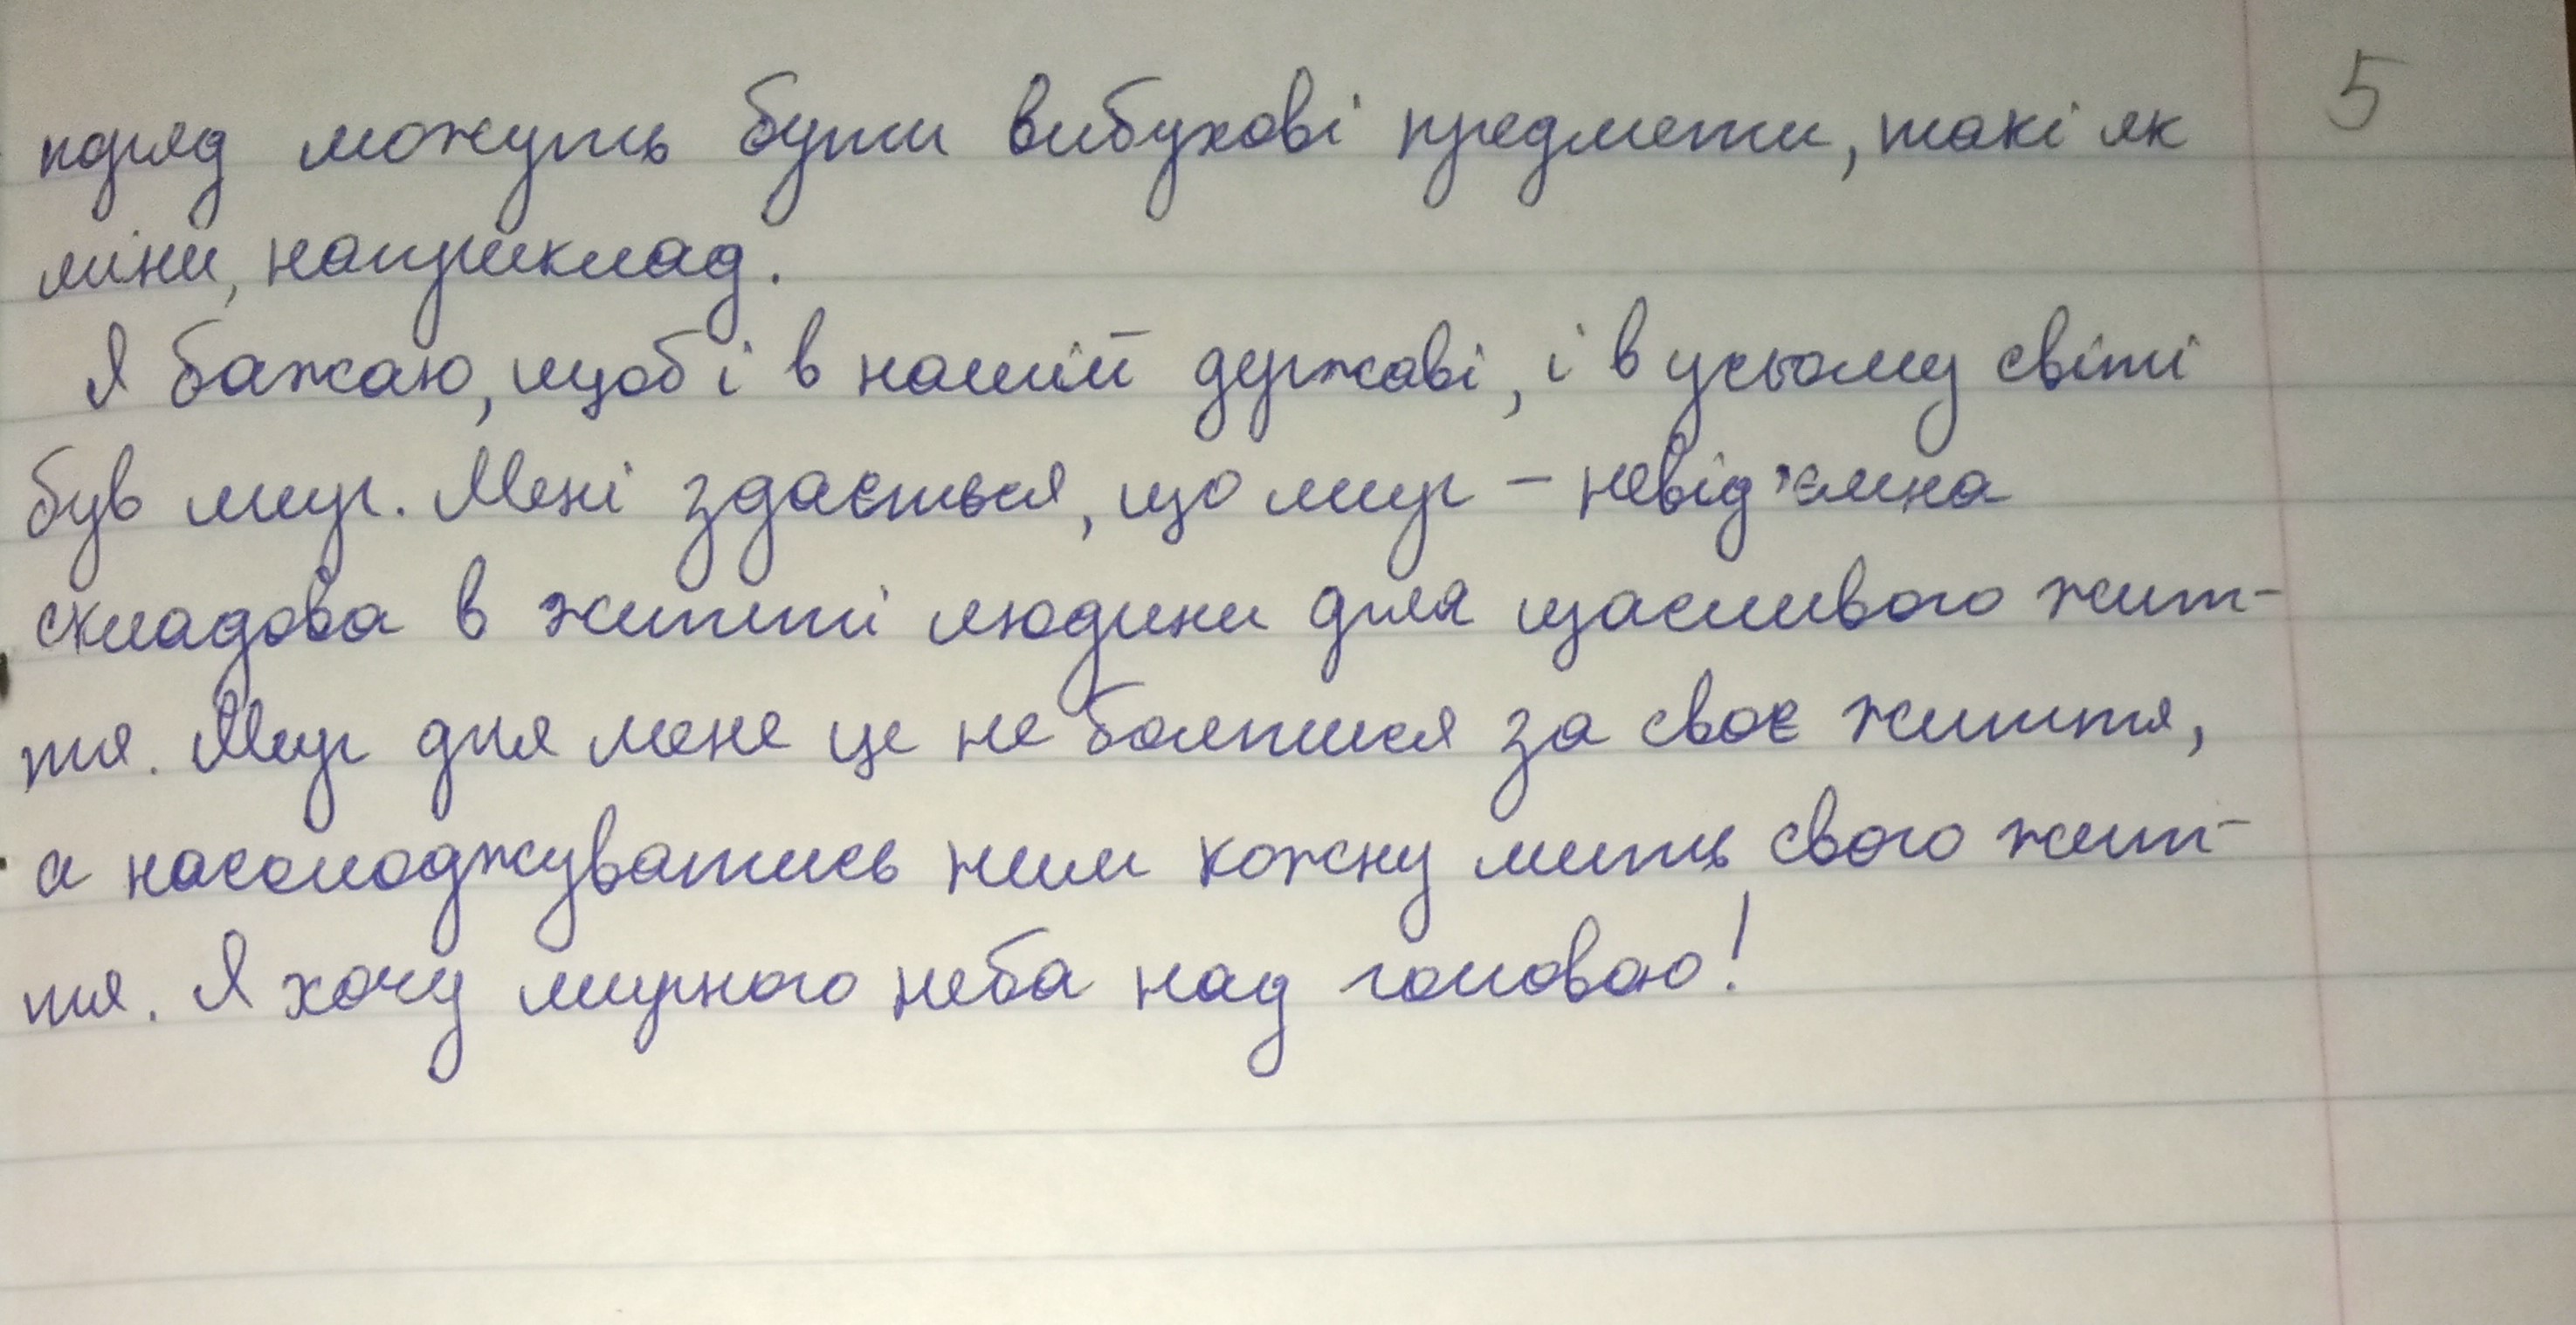 5
поряд можуть бути вибухові предмети, такі як
міни, наприклад.
Я бажаю, щоб і в нашій державі, і в усьому світі
був мир. Мені здається, що мир – невід'ємна
складова в житті людини для щасливого жит-
тя. Мир для мене це не боятися за своє життя,
а насолоджуватись ним кожну мить свого жит-
тя. Я хочу мирного неба над головою!